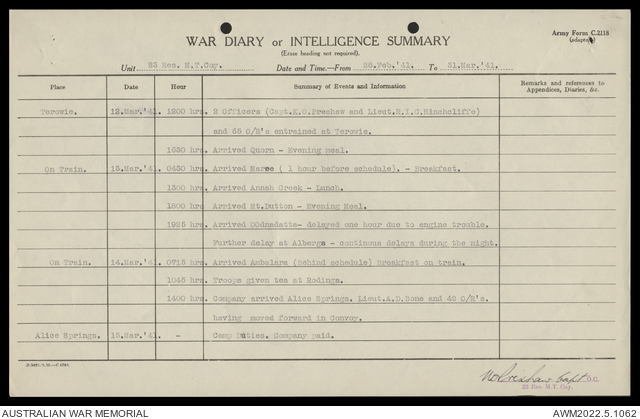 Army Form C.2118
(adapted)
WAR DIARY or INTELLIGENCE SUMMARY
(Erase heading not required).
Unit 23 Res. M.T.Coy. Date and Time—From 26.Feb.'41. To 31.Mar.'41.
Place Date Hour Summary of Events and Information Remarks and references to Appendices, Diaries, &c.
Terowie. 12.Mar.'41. 1200 hrs. 2 Officers (Capt.K.O.Preshaw and Lieut.R.I.C.Hinchcliffe)
and 65 O/R's entrained at Terowie.
1630 hrs. Arrived Quorn - Evening meal.
On Train. 13.Mar.'41. 0430 hrs. Arrived Maree ( 1 hour before schedule). - Breakfast.
1300 hrs. Arrived Annah Creek - Lunch.
1800 hrs. Arrived Mt.Dutton - Evening Meal.
1925 hrs. Arrived OOdnadatta- delayed one hour due to engine trouble.
Further delay at Alberga - continous delays during the night.
On Train. 14.Mar.'41. 0715 hrs. Arrived Ambalara (Behind schedule) Breakfast on train.
1045 hrs. Troops given tea at Rodinga.
1400 hrs. Company arrived Alice Springs. Lieut.A.D.Bone and 42 O/R's.
having moved forward in Convoy.
Alice Springs. 15.Mar.'41. - Camp Duties. Company paid.
Capt O.C.
23 Res. M.T. Coy.
AUSTRALIAN WAR MEMORIAL AWM2022.5.1062